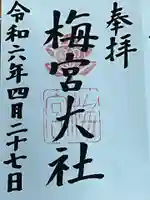 奉拝
梅宮大社
令和六年四月二十七日